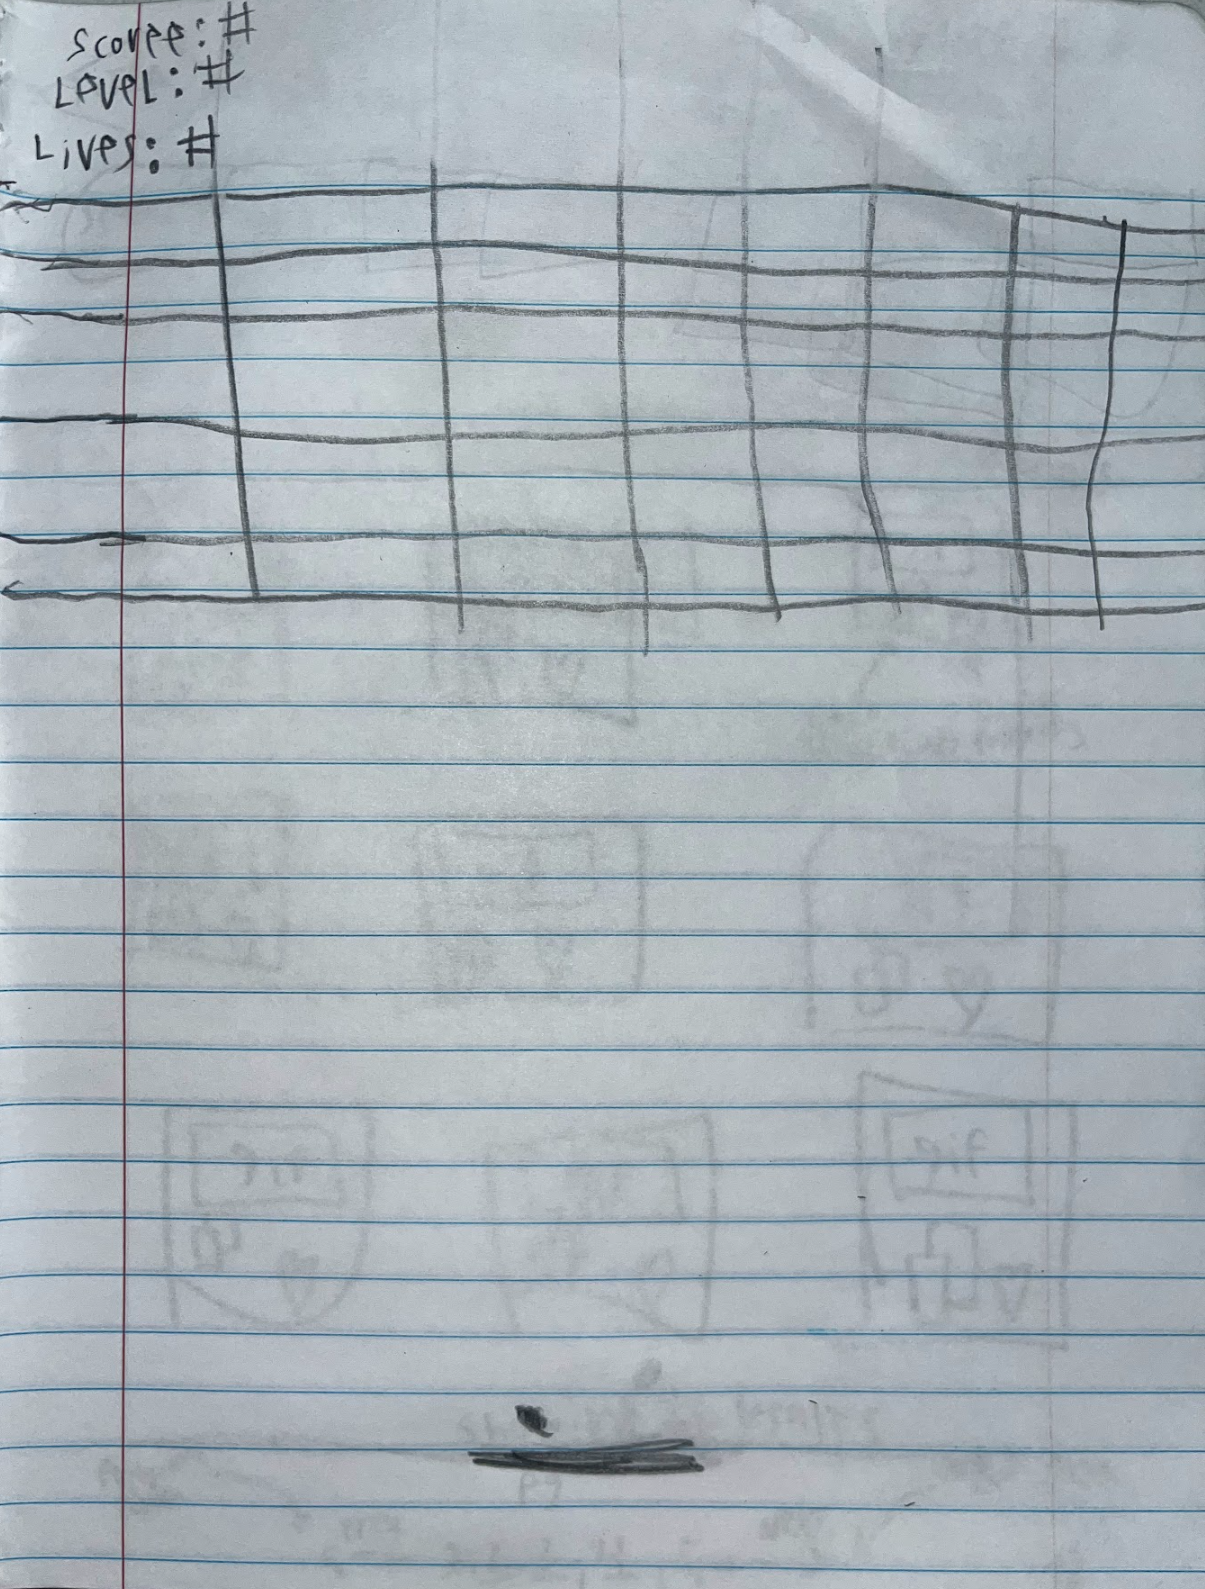 Scoree: #
Level: #
Lives: #